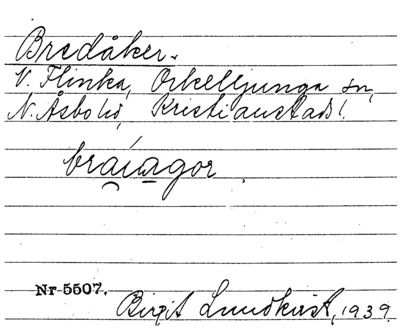 Bredåker.
V. Flinka, Örkelljunga sn,
N. Åsbo hd, Kristianstads l.
bráiagor.
Nr 5507.
Birgit Lundkvist, 1939.